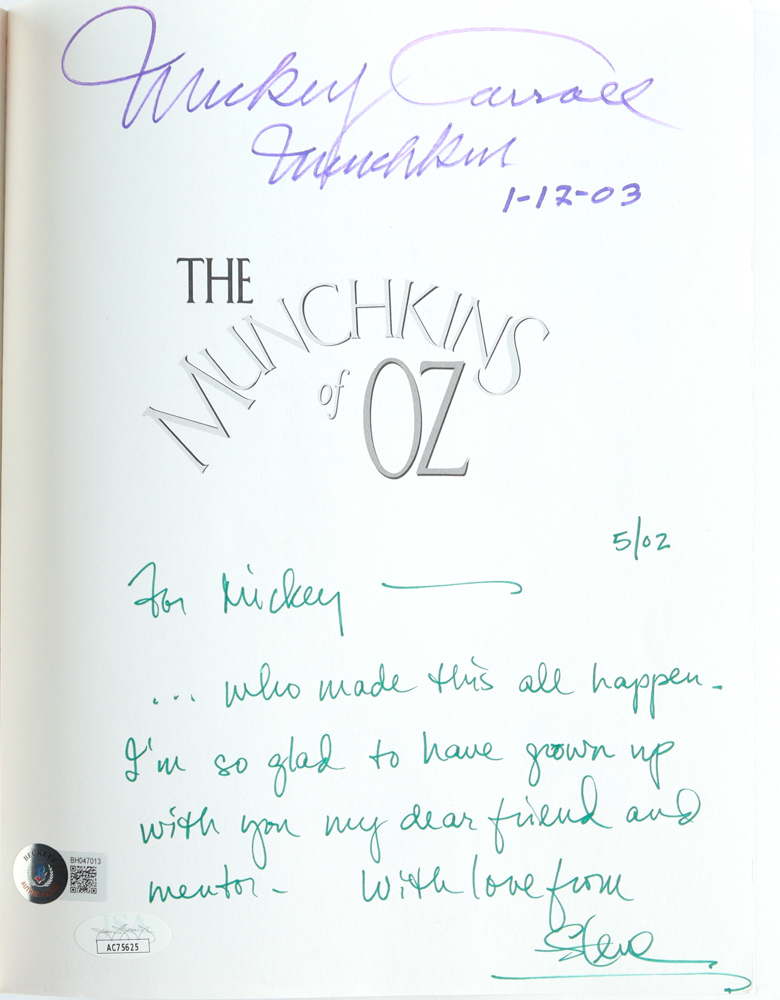 Mickey Carroll
Munchkin
1-12-03
THE
MUNCHKINS
of OZ
5/02
For Mickey —
... who made this all happen.
I'm so glad to have grown up
with you my dear friend and
mentor - With love from
Steve
BECKETT
BH047013
JSA
AC75625